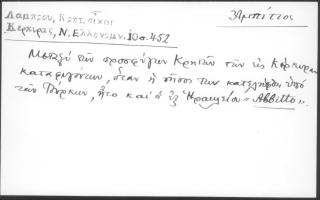 Λαμπρου, Κρητ. οἶκοι
Κερκυρας, Ν. Ελληνομν. 10 σ. 452
Ἀμπίττος
Μεταξὺ τῶν προσφύγων Κρητῶν τῶν εἰς Κέρκυραν
καταφυγόντων, ὅταν ἡ νῆσος των κατελήφθη ὑπὸ
τῶν Τούρκων, ἦτο καὶ ὁ ἐξ Ἡρακλείου «Abbitto».